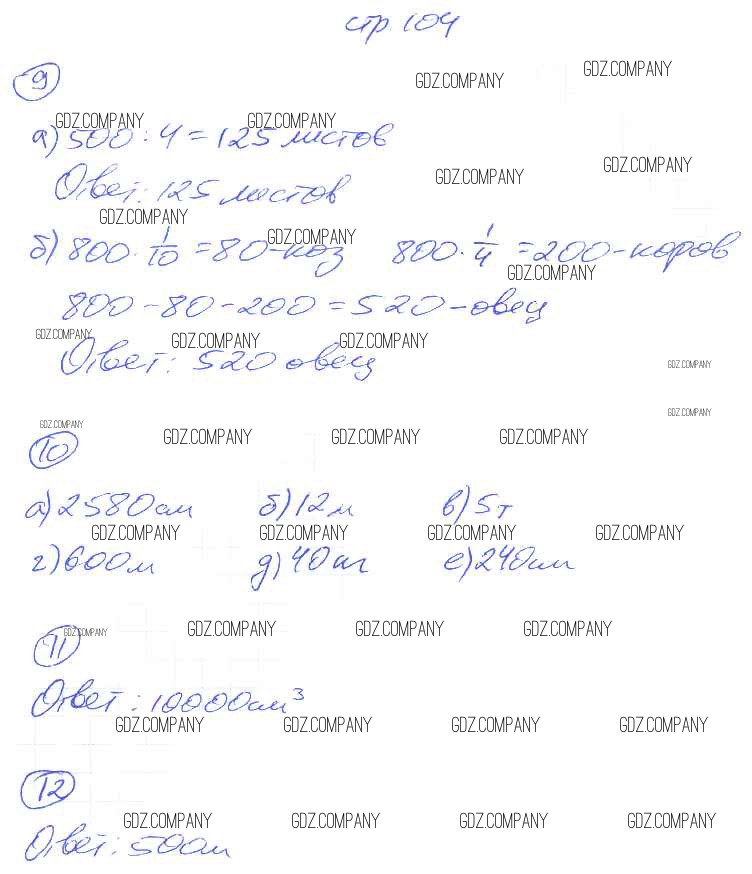 стр. 104
9
GDZ.COMPANY GDZ.COMPANY
GDZ.COMPANY GDZ.COMPANY
а) 500 : 4 = 125 листов
GDZ.COMPANY GDZ.COMPANY
Ответ: 125 листов
GDZ.COMPANY GDZ.COMPANY
б) 800 · 1/10 = 80 - коз 800 · 1/4 = 200 - коров
GDZ.COMPANY
800 - 80 - 200 = 520 - овец
GDZ.COMPANY GDZ.COMPANY GDZ.COMPANY
Ответ: 520 овец
GDZ.COMPANY
GDZ.COMPANY
GDZ.COMPANY GDZ.COMPANY GDZ.COMPANY GDZ.COMPANY
10
а) 2580 см б) 12 м в) 5 т
GDZ.COMPANY GDZ.COMPANY GDZ.COMPANY GDZ.COMPANY
г) 600 м д) 40 кг е) 240 см
GDZ.COMPANY GDZ.COMPANY GDZ.COMPANY GDZ.COMPANY
11
Ответ: 10000 см³
GDZ.COMPANY GDZ.COMPANY GDZ.COMPANY GDZ.COMPANY
12
GDZ.COMPANY GDZ.COMPANY GDZ.COMPANY GDZ.COMPANY
Ответ: 50 см